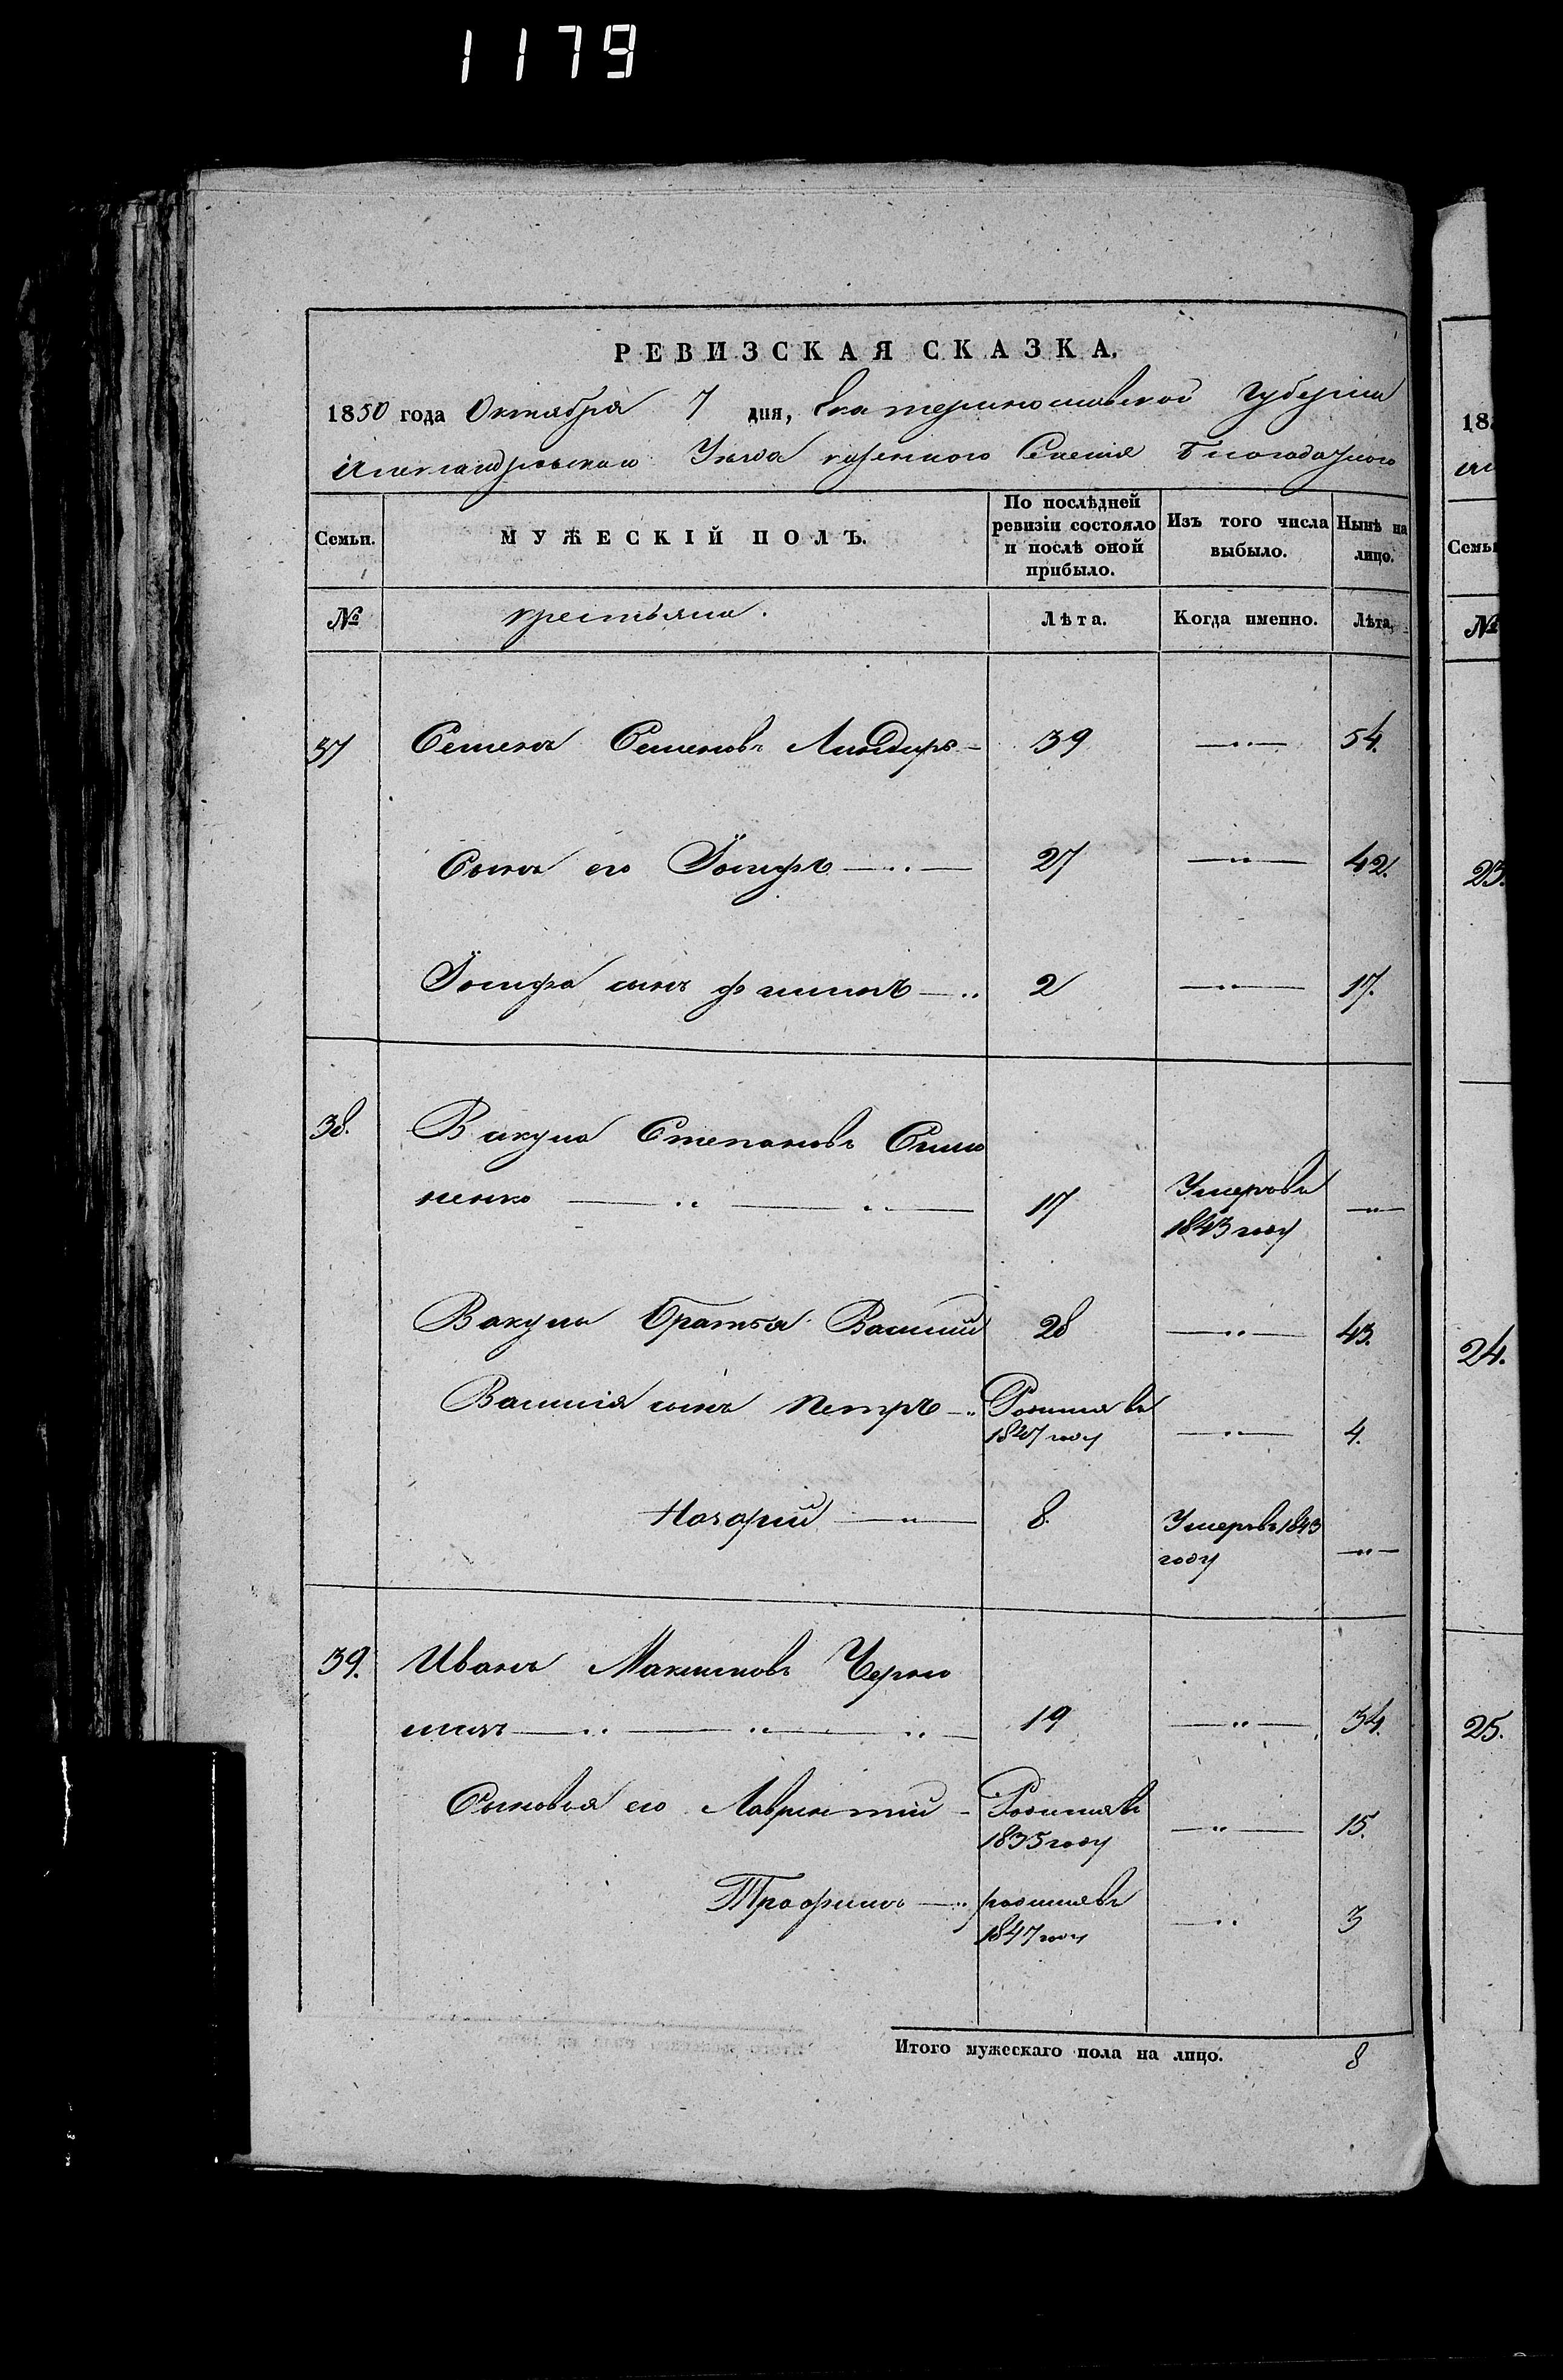 1179
РЕВИЗСКАЯ СКАЗКА.
1850 года Октября 7 дня, Екатеринославской Губернии
Александровского Уезда казенного Селенія Благодатного
Семьи. МУЖЕСКІЙ ПОЛЪ. По послѣдней ревизіи состояло и послѣ оной прибыло. Изъ того числа выбыло. Нынѣ на лицо.
№ крестьяне. Лѣта. Когда именно. Лѣта.
37 Семенъ Семеновъ 39 54.
Сынъ его Іосифъ 27 42.
Іосифа сынъ Филипъ 2 17.
38. Вакула Степановъ Сими
ненко 17 Умеръ въ 1843 году
Вакулы братья Василий 28 43.
Василия сынъ Петръ Родился въ 1847 году 4.
Назарий 8. Умеръ въ 1843 году
39. Иванъ Максимовъ Черно
19 34.
Сыновья его Лаврентий Родился въ 1835 году 15.
Трофимъ родился въ 1847 году 3
Итого мужескаго пола на лицо. 8
18
Семьи
№
23.
24.
25.